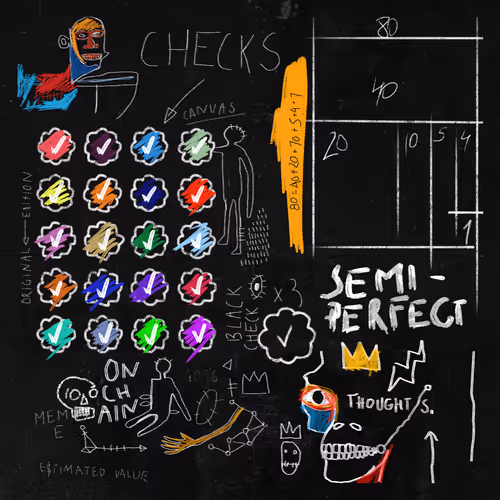 CHECKS
CANVAS
80
40
20
10
5
4
1
80=40+20+10+5+4+1
ORIGINAL
EDITION
BLACK
CHECK
x3
SEMI-
PERFECT
ON
CH
AIN
MEM
E
THOUGHTS.
ESTIMATED VALUE